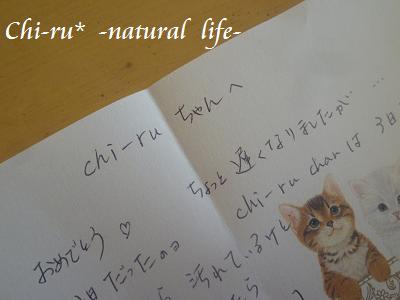 Chi-ru* -natural life-
chi-ru ちゃんへ
ちょっと遅くなりましたが…
おめでとう♡
chi-ru chanは 3日
日だったのョ
汚れているけし